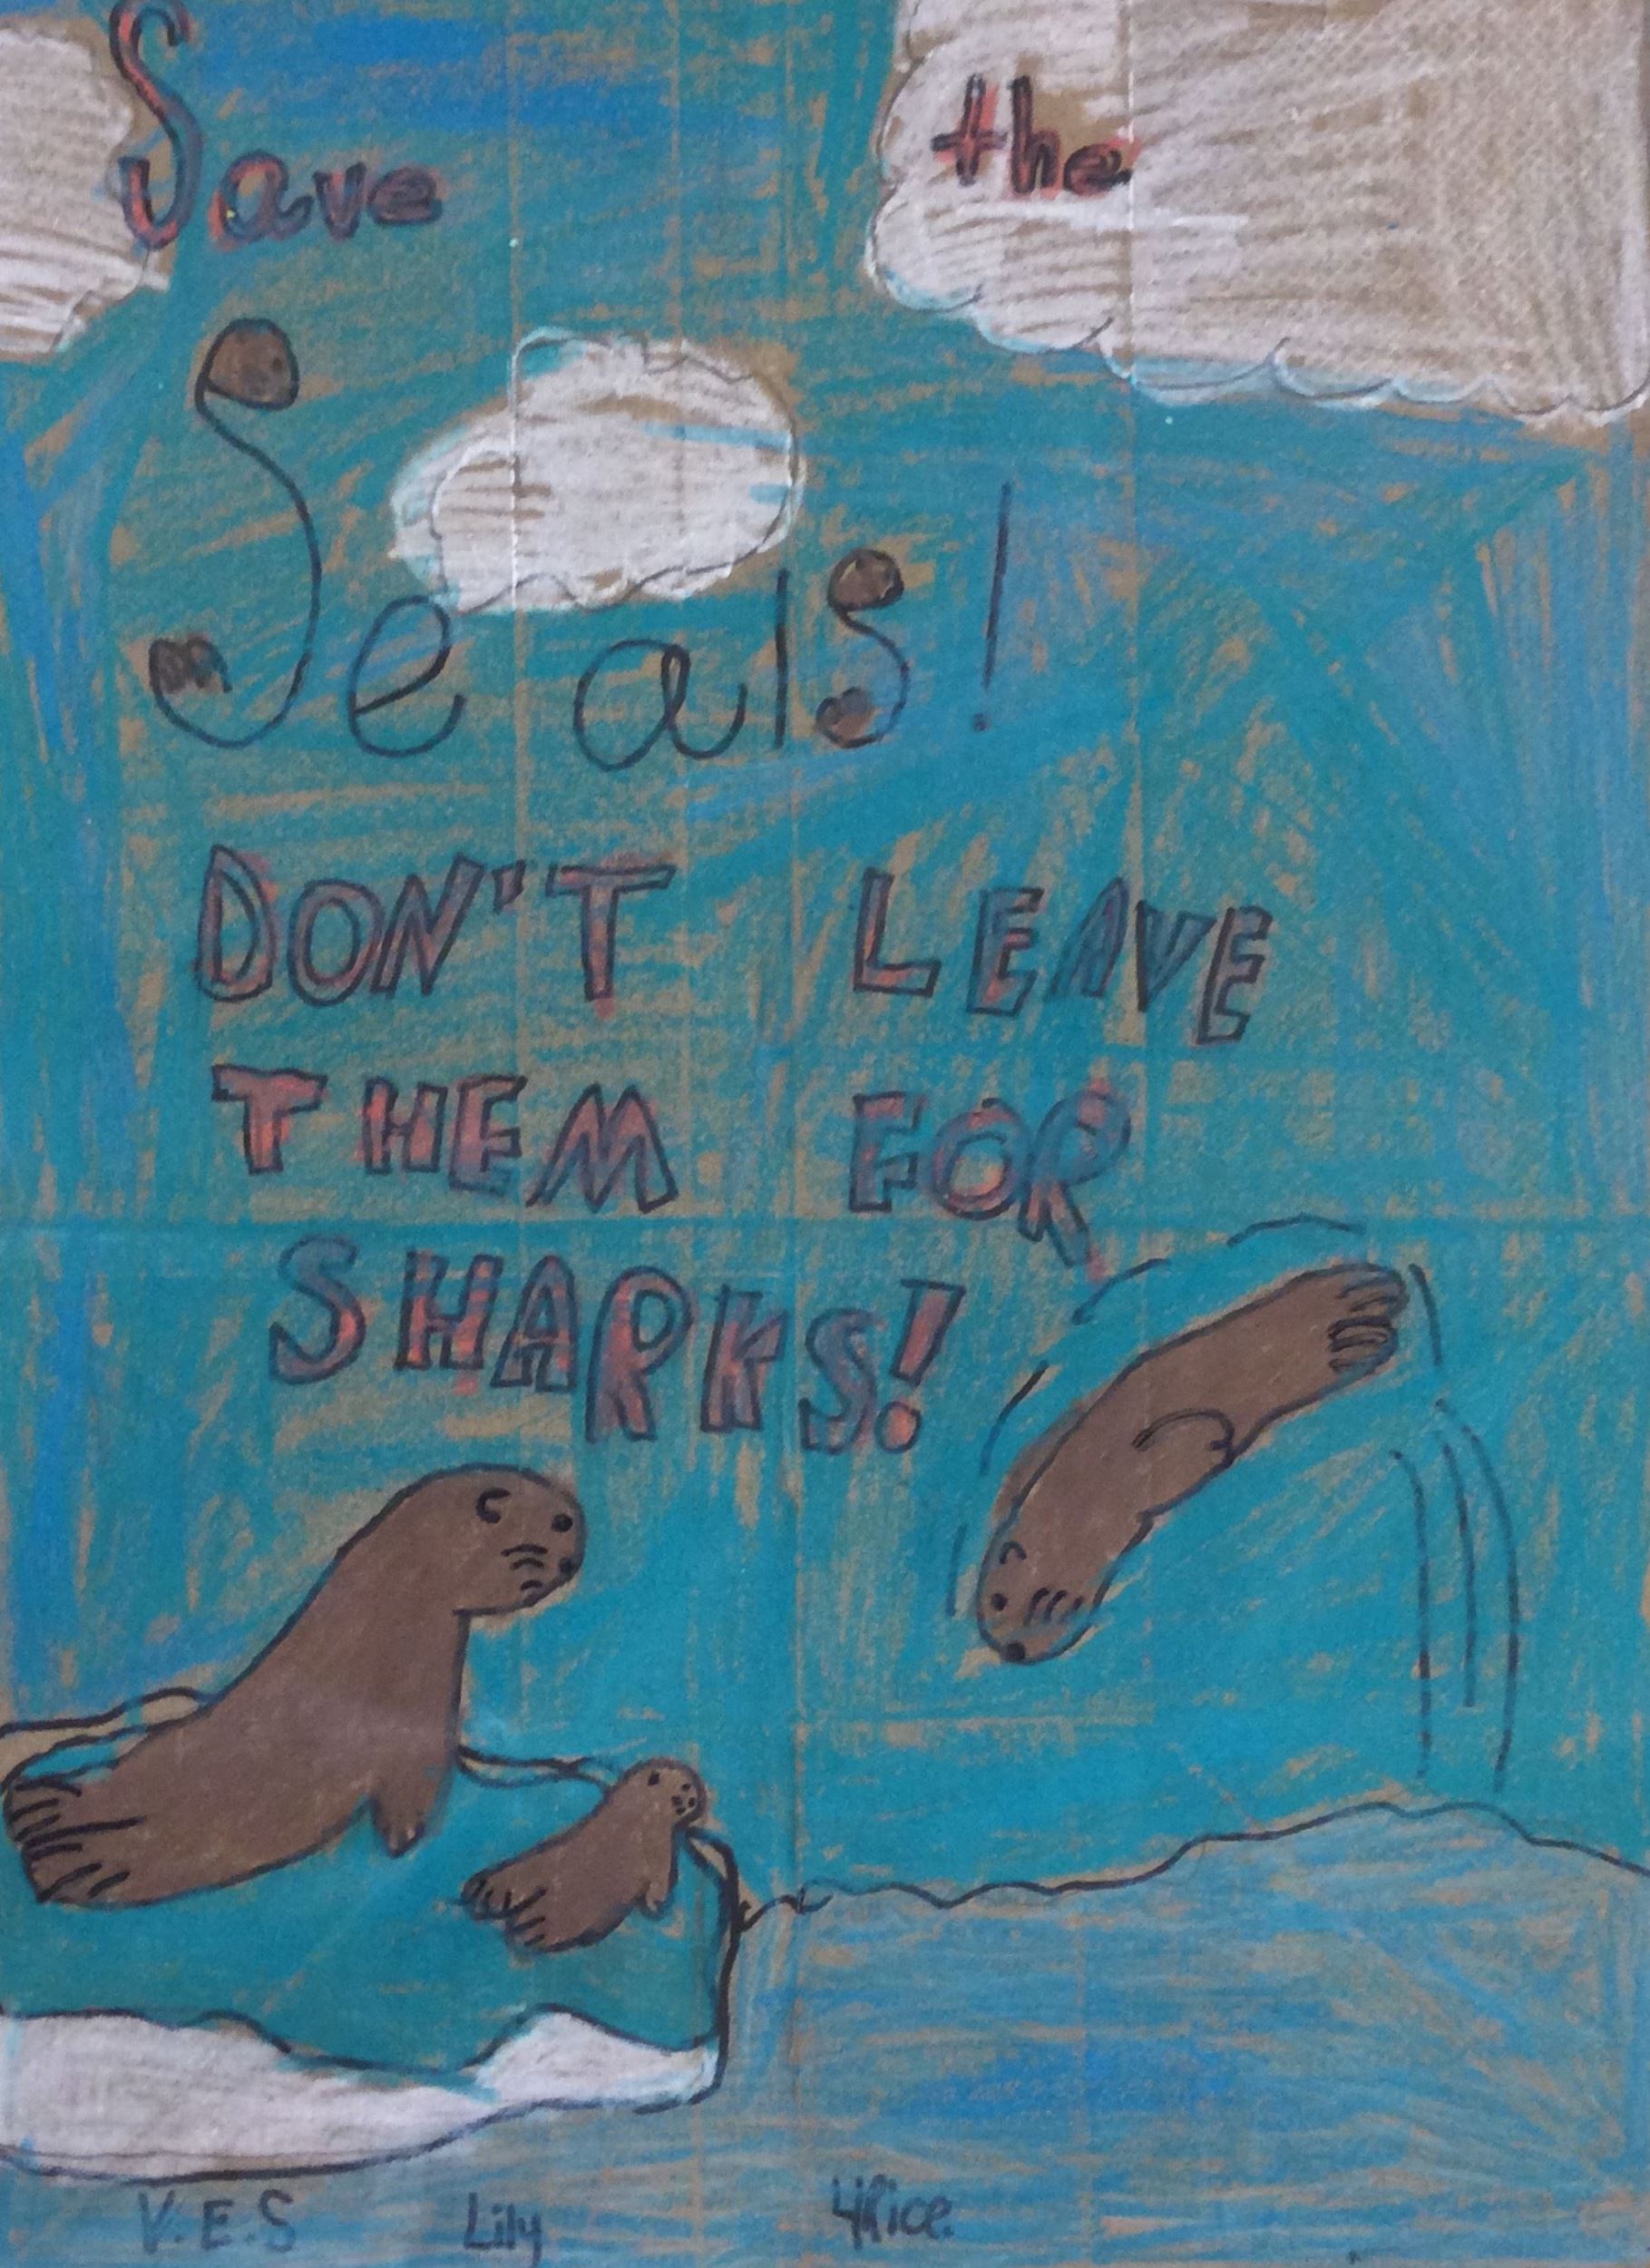 Save the
Seals!
DON'T LEAVE
THEM FOR
SHARKS!
V.E.S Lily 4Rice.